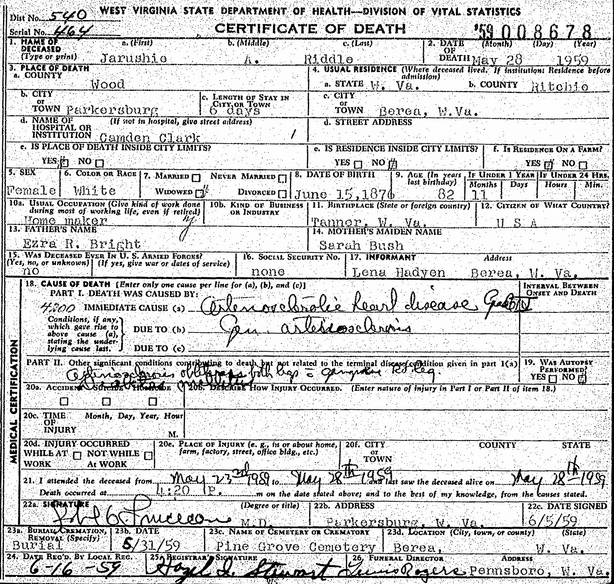 WEST VIRGINIA STATE DEPARTMENT OF HEALTH—DIVISION OF VITAL STATISTICS
Dist No. 540
Serial No. 464 CERTIFICATE OF DEATH '59 008678
1. NAME OF DECEASED (Type or print) a. (First) b. (Middle) c. (Last) 2. DATE OF DEATH (Month) (Day) (Year)
Jarushie A. Riddle May 28 1959
3. PLACE OF DEATH 4. USUAL RESIDENCE (Where deceased lived. If institution: Residence before admission)
a. COUNTY Wood a. STATE W. Va. b. COUNTY Ritchie
b. CITY OR TOWN Parkersburg c. LENGTH OF STAY IN CITY OR TOWN 6 days c. CITY OR TOWN Berea, W.Va.
d. NAME OF HOSPITAL OR INSTITUTION (If not in hospital, give street address) Camden Clark d. STREET ADDRESS
e. IS PLACE OF DEATH INSIDE CITY LIMITS? e. IS RESIDENCE INSIDE CITY LIMITS? f. IS RESIDENCE ON A FARM?
YES NO YES NO YES NO
5. SEX 6. COLOR OR RACE 7. MARRIED NEVER MARRIED 8. DATE OF BIRTH 9. AGE (In years last birthday) IF UNDER 1 YEAR IF UNDER 24 HRS.
Female White WIDOWED DIVORCED June 15, 1876 82 Months 11 Days Hours Min.
10a. USUAL OCCUPATION (Give kind of work done during most of working life, even if retired) 10b. KIND OF BUSINESS OR INDUSTRY 11. BIRTHPLACE (State or foreign country) 12. CITIZEN OF WHAT COUNTRY?
Home maker Tanner, W. Va. U S A
13. FATHER'S NAME 14. MOTHER'S MAIDEN NAME
Ezra R. Bright Sarah Bush
15. WAS DECEASED EVER IN U. S. ARMED FORCES? (Yes, no, or unknown) (If yes, give war or dates of service) 16. SOCIAL SECURITY NO. 17. INFORMANT Address
no none Lena Hadyen Berea, W. Va.
MEDICAL CERTIFICATION
18. CAUSE OF DEATH (Enter only one cause per line for (a), (b), and (c)) INTERVAL BETWEEN ONSET AND DEATH
PART I. DEATH WAS CAUSED BY:
4200 IMMEDIATE CAUSE (a) Arteriosclerotic heart disease
Conditions, if any, which gave rise to above cause (a), stating the underlying cause last.
DUE TO (b) Gen. arteriosclerosis
DUE TO (c)
PART II. Other significant conditions contributing to death but not related to the terminal disease condition given in part 1(a) 19. WAS AUTOPSY PERFORMED?
obliterans both legs gangrene YES NO
20a. ACCIDENT SUICIDE HOMICIDE 20b. DESCRIBE HOW INJURY OCCURRED. (Enter nature of injury in Part I or Part II of item 18.)
20c. TIME OF INJURY Month, Day, Year, Hour M.
20d. INJURY OCCURRED WHILE AT WORK NOT WHILE AT WORK 20e. PLACE OF INJURY (e. g., in or about home, farm, factory, street, office bldg., etc.) 20f. CITY OR TOWN COUNTY STATE
21. I attended the deceased from May 23rd 1959 to May 28th 1959 and last saw the deceased alive on May 28th 1959
Death occurred at 4:20 P. m on the date stated above; and to the best of my knowledge, from the causes stated.
22a. SIGNATURE (Degree or title) 22b. ADDRESS 22c. DATE SIGNED
M.D. Parkersburg, W. Va. 6/5/59
23a. BURIAL, CREMATION, REMOVAL (Specify) 23b. DATE 23c. NAME OF CEMETERY OR CREMATORY 23d. LOCATION (City, town, or county) (State)
Burial 5/31/59 Pine Grove Cemetery Berea, W. Va.
24. DATE REC'D. BY LOCAL REG. 25. REGISTRAR'S SIGNATURE 26. FUNERAL DIRECTOR Address
6-16-59 Hazel L. Stewart Lewis Rogers Pennsboro, W. Va.